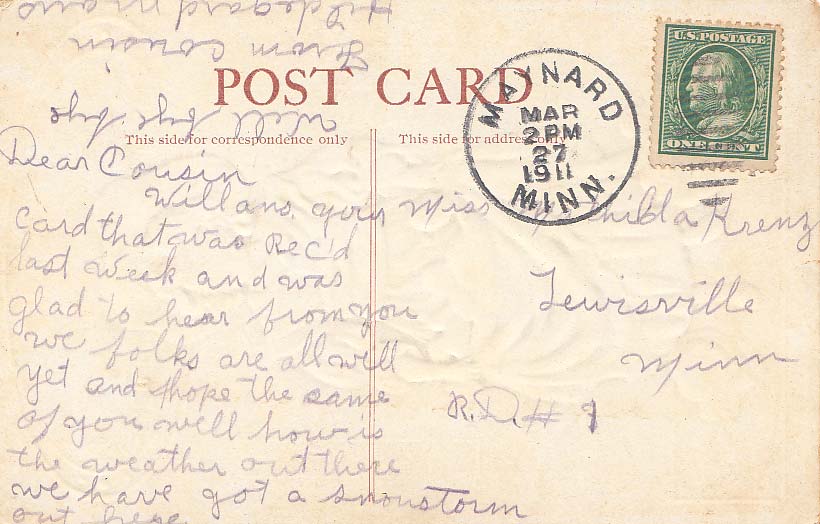 POST CARD
This side for correspondence only
This side for address only
U.S. POSTAGE
ONE CENT
MAYNARD
MAR
2 PM
27
1911
MINN.
Dear Cousin
Will ans. your
card that was Rec'd
last week and was
glad to hear from you
we folks are all will
yet and hope the same
of you well how is
the weather out there
we have got a snowstorm
out here
well bye bye
from cousin
Hildegard
Miss Krenz
Lewisville
Minn
R.D. # 1